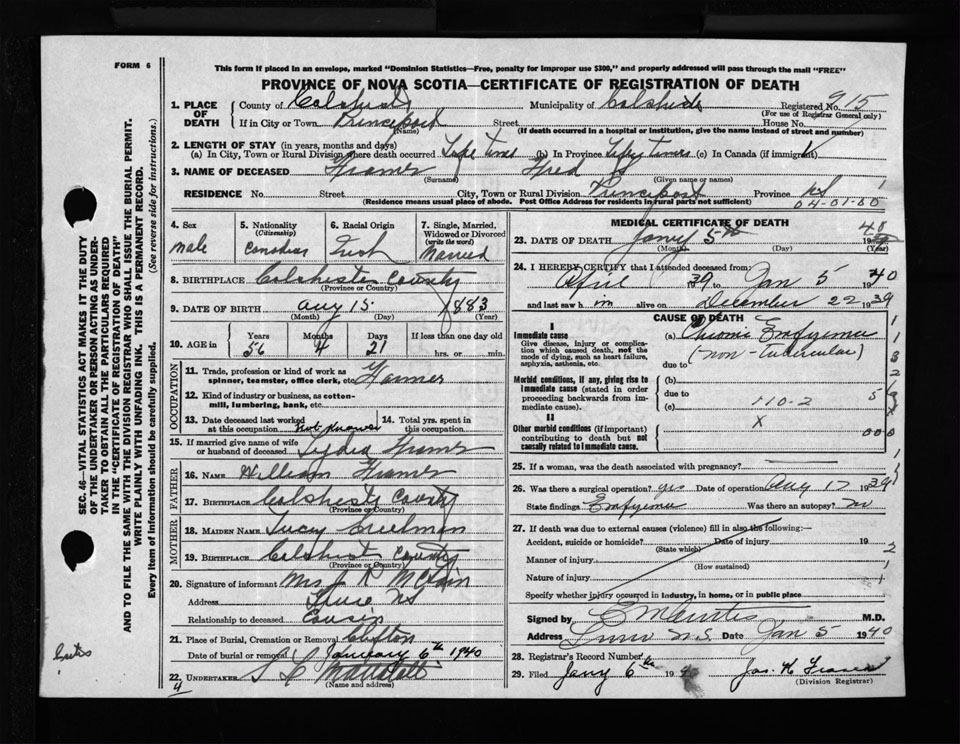 FORM 6
This form if placed in an envelope, marked "Dominion Statistics—Free, penalty for improper use $300," and properly addressed will pass through the mail "FREE"
PROVINCE OF NOVA SCOTIA—CERTIFICATE OF REGISTRATION OF DEATH
1. PLACE OF DEATH
County of Colchester
Municipality of Colchester
Registered No. 915
(For use of Registrar General only)
If in City or Town Princeport
Street
House No.
(Name)
(If death occurred in a hospital or institution, give the name instead of street and number)
2. LENGTH OF STAY (in years, months and days)
(a) In City, Town or Rural Division where death occurred Life time (b) In Province Life time (c) In Canada (if immigrant)
3. NAME OF DECEASED Framer Fred
(Surname) (Given name or names)
RESIDENCE No. Street City, Town or Rural Division Princeport Province NS
(Residence means usual place of abode. Post Office Address for residents in rural parts not sufficient)
04-01-60
4. Sex
male
5. Nationality
(Citizenship)
Canadian
6. Racial Origin
Irish
7. Single, Married, Widowed or Divorced
(write the word)
Married
8. BIRTHPLACE Colchester County
(Province or Country)
9. DATE OF BIRTH Aug 15 1883
(Month) (Day) (Year)
10. AGE in
Years 56
Months 4
Days 21
If less than one day old
hrs. or min.
OCCUPATION
11. Trade, profession or kind of work as spinner, teamster, office clerk, etc. Farmer
12. Kind of industry or business, as cotton-mill, lumbering, bank, etc.
13. Date deceased last worked at this occupation Not Known
14. Total yrs. spent in this occupation
15. If married give name of wife or husband of deceased. Lydia Framer
FATHER
16. NAME William Framer
17. BIRTHPLACE Colchester County
(Province or Country)
MOTHER
18. MAIDEN NAME Lucy Creelman
19. BIRTHPLACE Colchester County
(Province or Country)
20. Signature of informant Mrs J R
Address Truro NS
Relationship to deceased Cousin
21. Place of Burial, Cremation or Removal Clifton
Date of burial or removal January 6th 1940
22. UNDERTAKER
(Name and address)
4
MEDICAL CERTIFICATE OF DEATH
23. DATE OF DEATH Jany 5th 1940
(Month) (Day) (Year)
24. I HEREBY CERTIFY that I attended deceased from:
April 1939 to Jan 5 1940
and last saw him alive on December 22 1939
CAUSE OF DEATH
I
Immediate cause
Give disease, injury or complication which caused death, not the mode of dying, such as heart failure, asphyxia, asthenia, etc.
(a) Chronic Empyema
(non-Tubercular)
due to
Morbid conditions, if any, giving rise to immediate cause (stated in order proceeding backwards from immediate cause).
(b)
due to
(c) 110-2
II
Other morbid conditions (if important) contributing to death but not causally related to immediate cause.
x
25. If a woman, was the death associated with pregnancy?
26. Was there a surgical operation? yes Date of operation Aug 17 1939
State findings Empyema Was there an autopsy? no
27. If death was due to external causes (violence) fill in also the following:—
Accident, suicide or homicide? Date of injury 19
(State which)
Manner of injury
(How sustained)
Nature of injury
Specify whether injury occurred in industry, in home, or in public place
Signed by M.D.
Address Truro N.S. Date Jan 5 1940
28. Registrar's Record Number
29. Filed Jany 6th 19
Jas. H
(Division Registrar)
SEC. 46—VITAL STATISTICS ACT MAKES IT THE DUTY
OF THE UNDERTAKER OR PERSON ACTING AS UNDERTAKER TO OBTAIN ALL THE PARTICULARS REQUIRED
IN THE "CERTIFICATE OF REGISTRATION OF DEATH"
AND TO FILE THE SAME WITH THE DIVISION REGISTRAR WHO SHALL ISSUE THE BURIAL PERMIT.
WRITE PLAINLY WITH UNFADING INK. THIS IS A PERMANENT RECORD.
Every item of information should be carefully supplied. (See reverse side for instructions.)